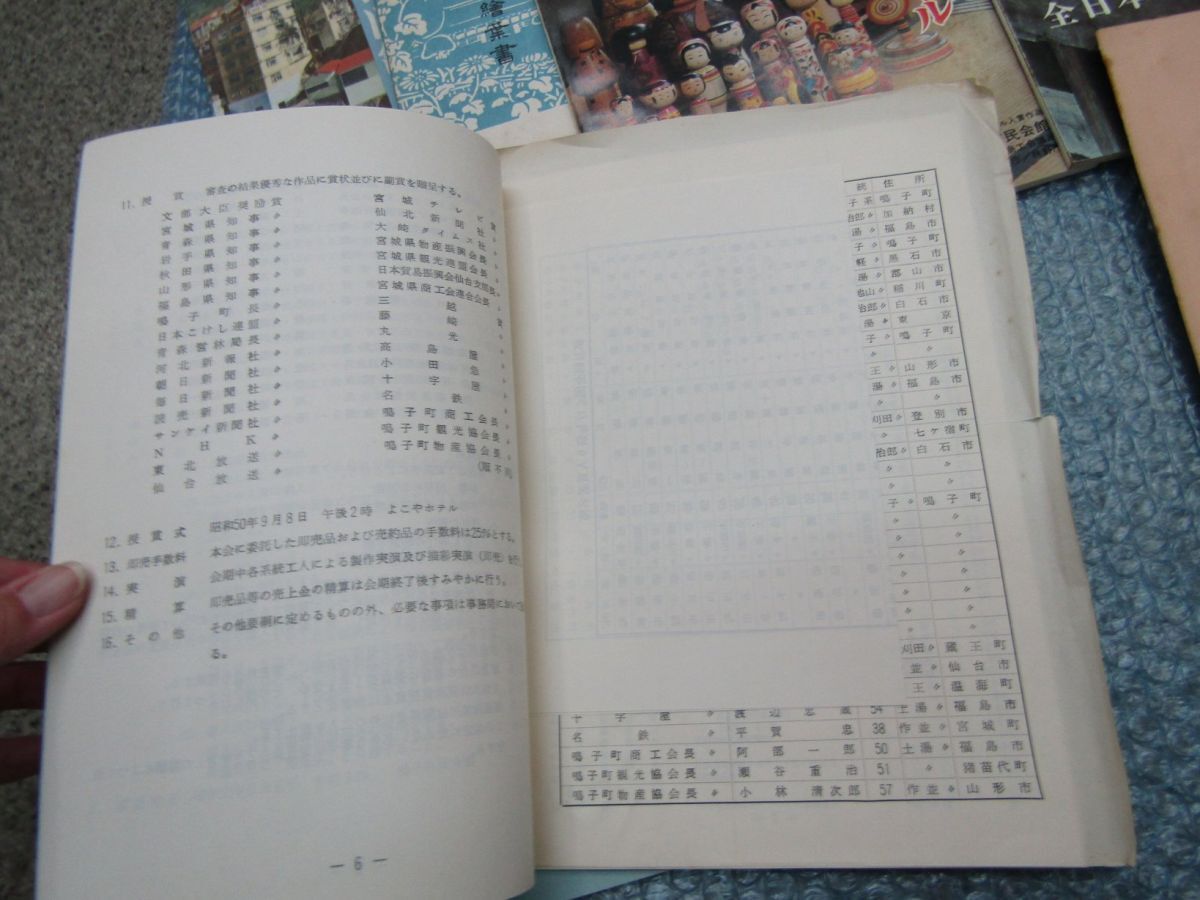 繪葉書
ル
全日本
民会館
11. 授賞 審査の結果優秀な作品に賞状並びに副賞を贈呈する。
文部大臣奨励賞 宮城テレビ賞
宮城県知事〃 仙北新聞社〃
青森県知事〃 大崎タイムス社〃
岩手県知事〃 宮城県物産振興会長〃
秋田県知事〃 宮城県観光連盟会長〃
山形県知事〃 日本貿易振興会仙台支部長〃
福島県知事〃 宮城県商工会連合会長〃
鳴子町長〃 三越賞
日本こけし連盟〃 藤崎〃
青森営林局長〃 丸光〃
河北新報社〃 高島屋〃
朝日新聞社〃 小田急〃
毎日新聞社〃 十字屋〃
読売新聞社〃 名鉄〃
サンケイ新聞社〃 鳴子町商工会長〃
NHK〃 鳴子町観光協会長〃
東北放送〃 鳴子町物産協会長〃
仙台放送〃 (順不同
12. 授賞式 昭和50年9月8日 午後2時 よこやホテル
13. 即売手数料 本会に委託した即売品および売約品の手数料は25%とする。
14. 実演 会期中各系統工人による製作実演及び描彩実演(即売)を行
15. 精算 即売品等の売上金の精算は会期終了後すみやかに行う。
16. その他 その他要綱に定めるものの外、必要な事項は事務局において
る。
— 6 —
統 住所
子系 鳴子町
治郎〃 加納村
湯〃 福島市
子〃 鳴子町
軽〃 黒石市
湯〃 郡山市
山〃 稲川町
治郎〃 白石市
湯〃 東京
子〃 鳴子町
〃 〃
王〃 山形市
湯〃 福島市
刈田〃 登別市
〃 七ケ宿町
治郎〃 白石市
〃 〃
〃 〃
子〃 鳴子町
〃 〃
〃 〃
〃 〃
〃 〃
〃 〃
〃 〃
刈田〃 蔵王町
〃 仙台市
王〃 温海町
十字屋〃 渡辺忠蔵 54 土湯〃 福島市
名鉄〃 平賀忠 38 作並〃 宮城町
鳴子町商工会長〃 阿部一郎 50 土湯〃 福島市
鳴子町観光協会長〃 瀬谷重治 51 〃 猪苗代町
鳴子町物産協会長〃 小林清次郎 57 作並〃 山形市